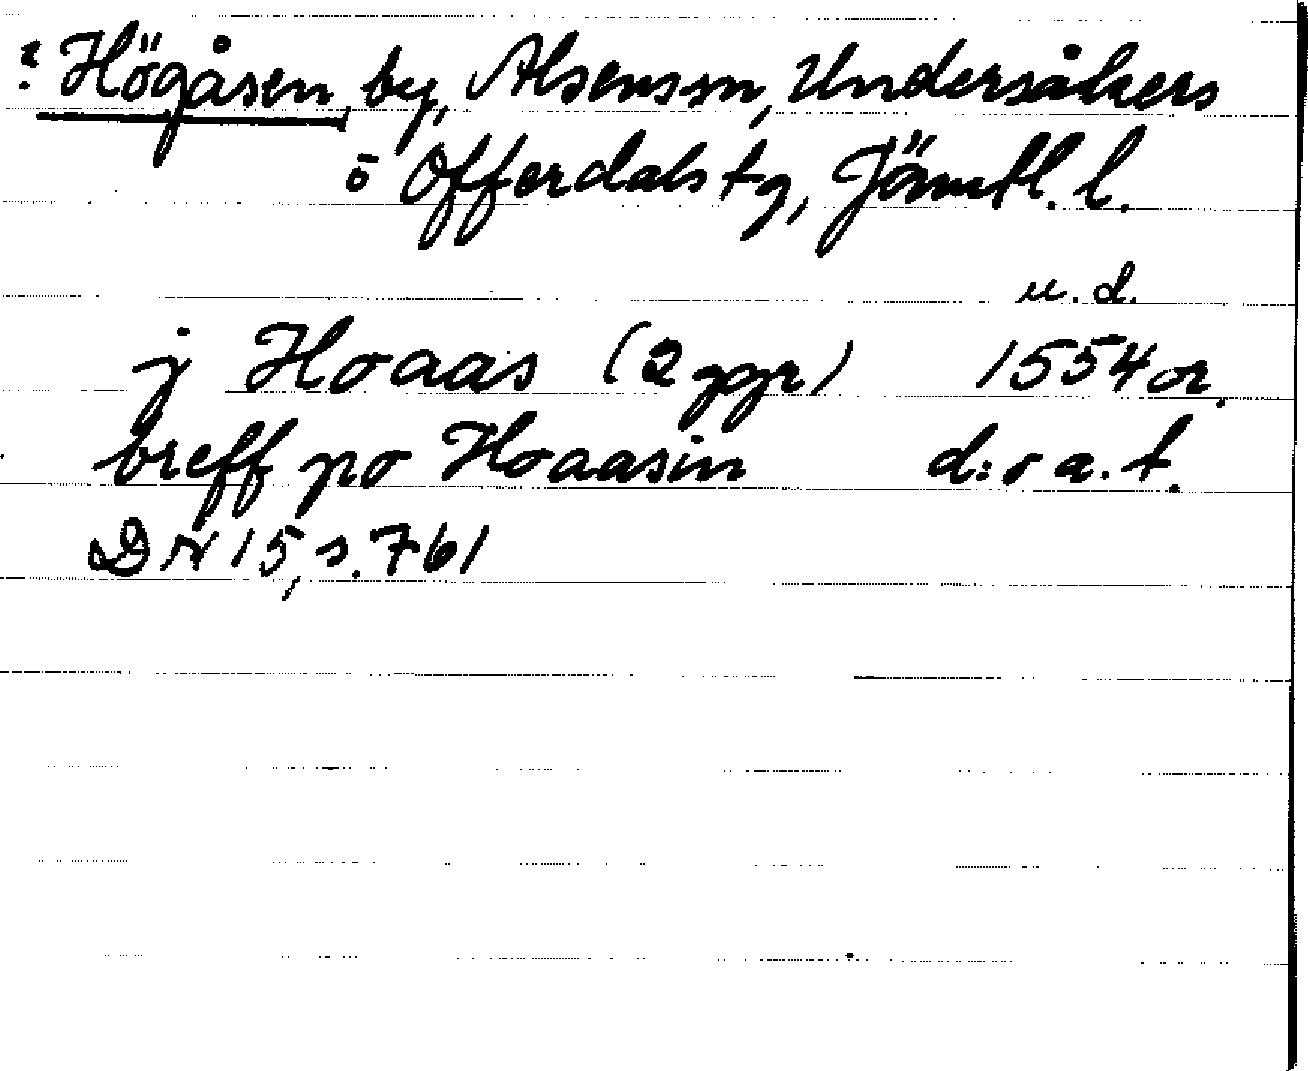 ? Högåsen by, Alsens sn, Undersåkers
o Offerdals tg, Jämtl. l.
u. d.
j Hoaas (2 ggr) 1554 or.
breff po Hoaasin d:o a. t.
DN 15, s. 761